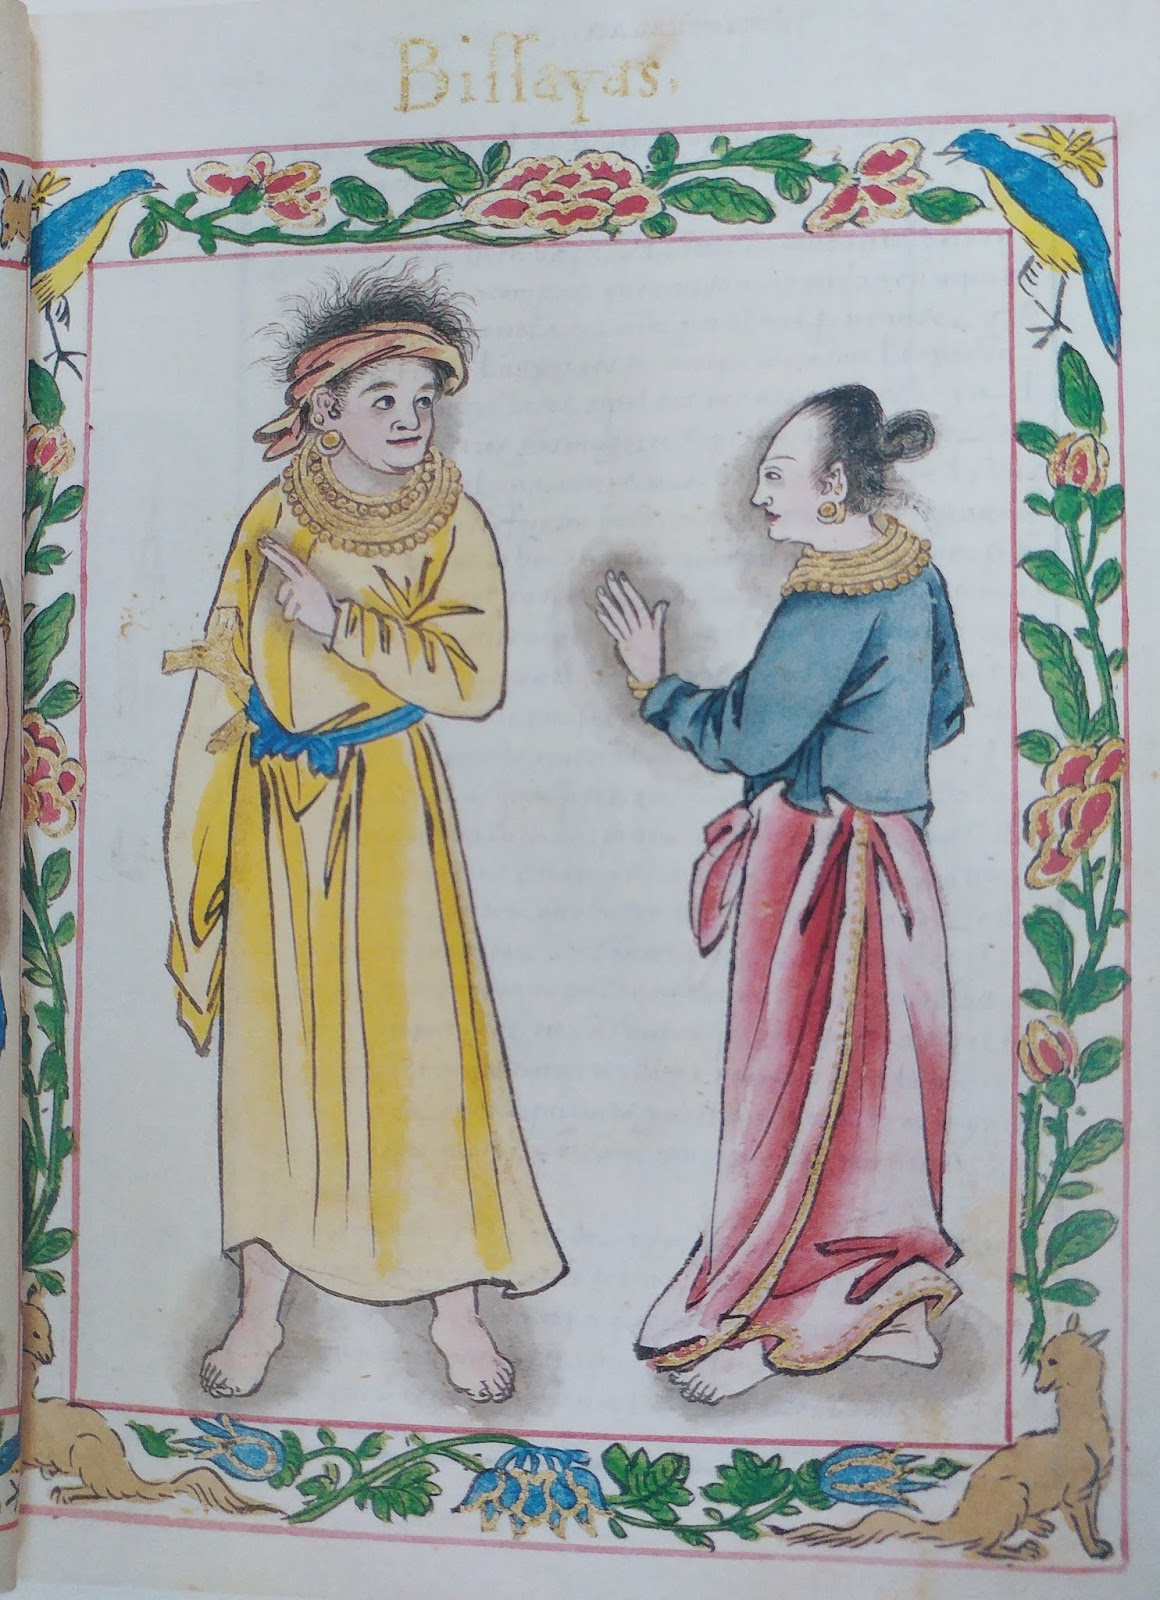 Biſſayas.